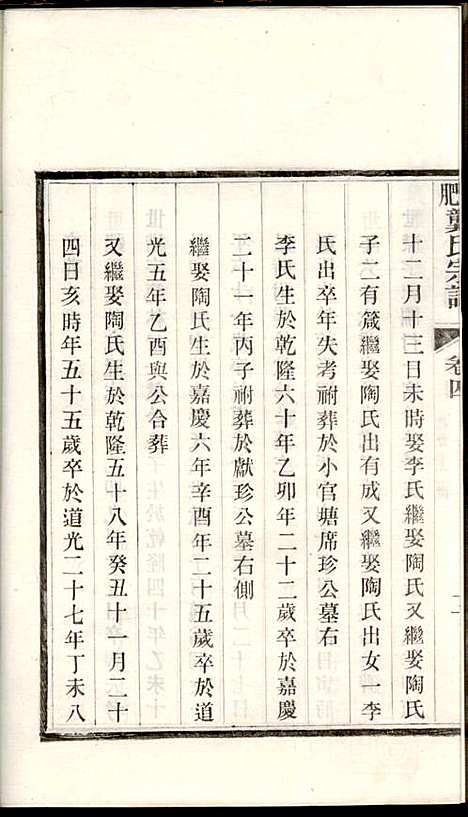 肥龔氏宗譜
卷四
十二月十三日未時娶李氏繼娶陶氏又繼娶陶氏
子二有箴繼娶陶氏出有成又繼娶陶氏出女一李
氏出卒年失考祔葬於小官塘席珍公墓右
李氏生於乾隆六十年乙卯年二十二歲卒於嘉慶
二十一年丙子祔葬於獻珍公墓右側
繼娶陶氏生於嘉慶六年辛酉年二十五歲卒於道
光五年乙酉與公合葬
又繼娶陶氏生於乾隆五十八年癸丑十一月二十
四日亥時年五十五歲卒於道光二十七年丁未八